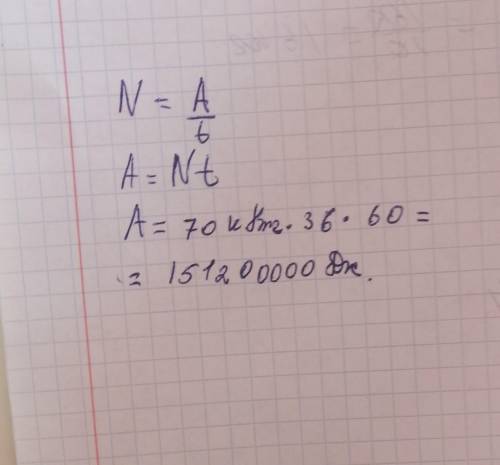 N = A/t
A = Nt
A = 70 кВт · 36 · 60 =
= 151200000 Дж.